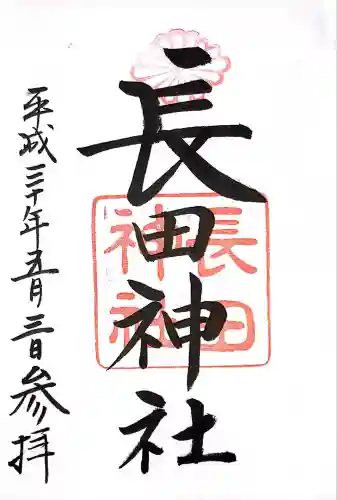 長田神社
長田
神社
平成三十年五月三日参拝